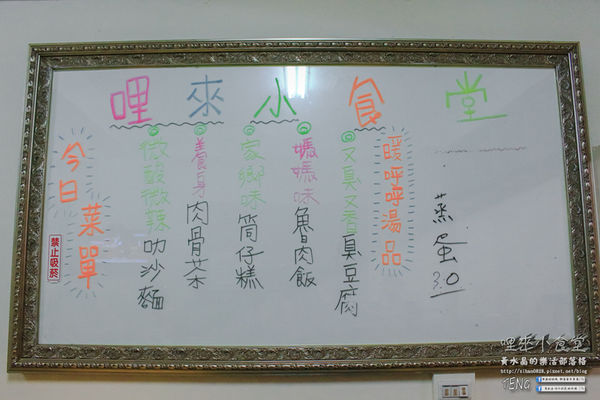 哩來小食堂
今日菜單
禁止吸菸
微酸微辣叻沙麵
養身肉骨茶
家鄉味筒仔糕
媽媽味魯肉飯
又臭又香臭豆腐
暖呼呼湯品
蒸蛋30
哩來小食堂
黃水晶的樂活部落格
TENG